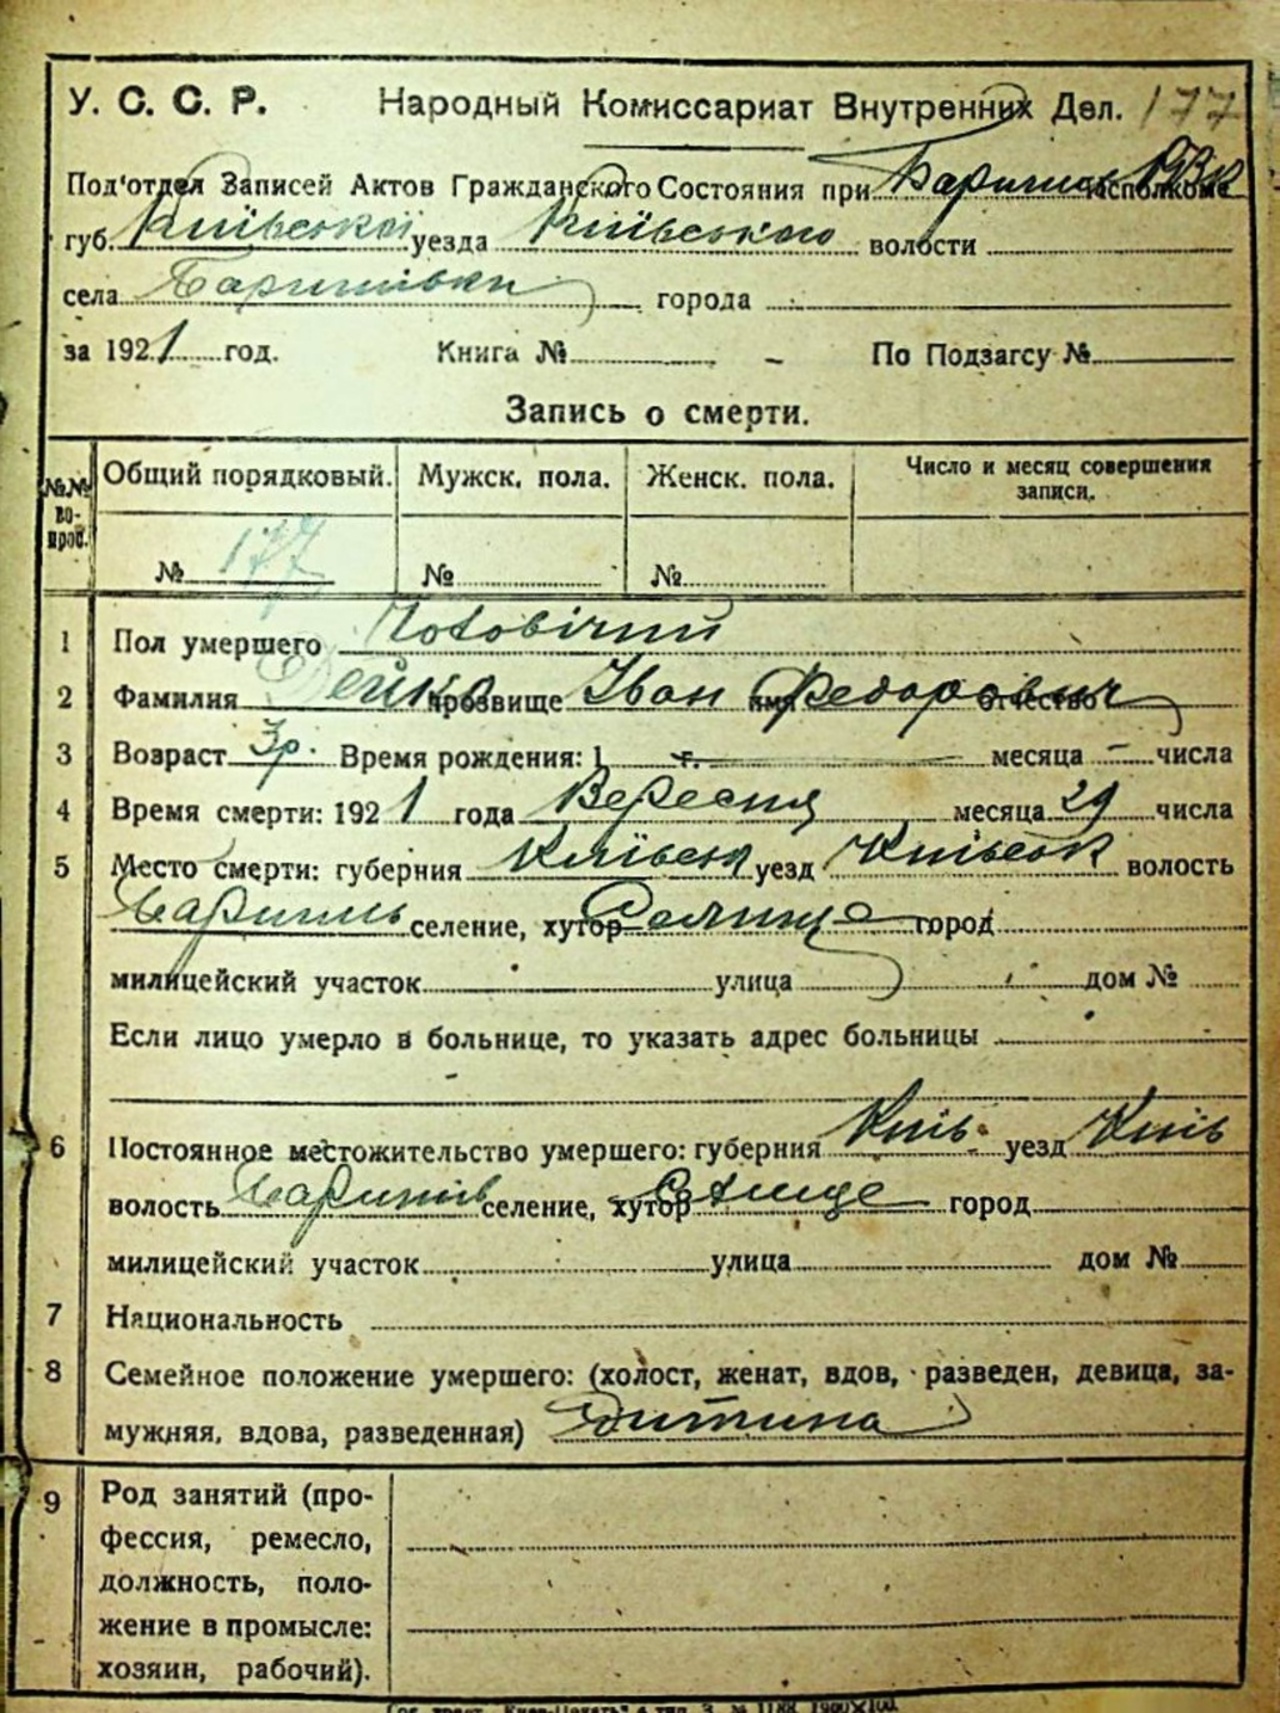 У. С. С. Р. Народный Комиссариат Внутренних Дел. 177
Под'отдел Записей Актов Гражданского Состояния при Баришів РВК исполкоме
губ. Київської уезда Київського волости
села Баришівки города
за 1921 год. Книга № По Подзагсу №
Запись о смерти.
№№ во-прос. Общий порядковый. Мужск. пола. Женск. пола. Число и месяц совершения записи.
№ 177 № №
1 Пол умершего Чоловічий
2 Фамилия Дейко прозвище Іван имя Федорович отчество
3 Возраст 3 р. Время рождения: 1 г. месяца числа
4 Время смерти: 1921 года Вересня месяца 29 числа
5 Место смерти: губерния Київськ уезд Київськ волость
Баришів селение, хутор Селище город
милицейский участок улица дом №
Если лицо умерло в больнице, то указать адрес больницы
6 Постоянное местожительство умершего: губерния Київ. уезд Київ
волость Баришів селение, хутор город
милицейский участок улица дом №
7 Национальность
8 Семейное положение умершего: (холост, женат, вдов, разведен, девица, за-
мужняя, вдова, разведенная) Дитина
9 Род занятий (про-
фессия, ремесло,
должность, поло-
жение в промысле:
хозяин, рабочий).
"Киев-Печать" 4 тип. З. № 1188